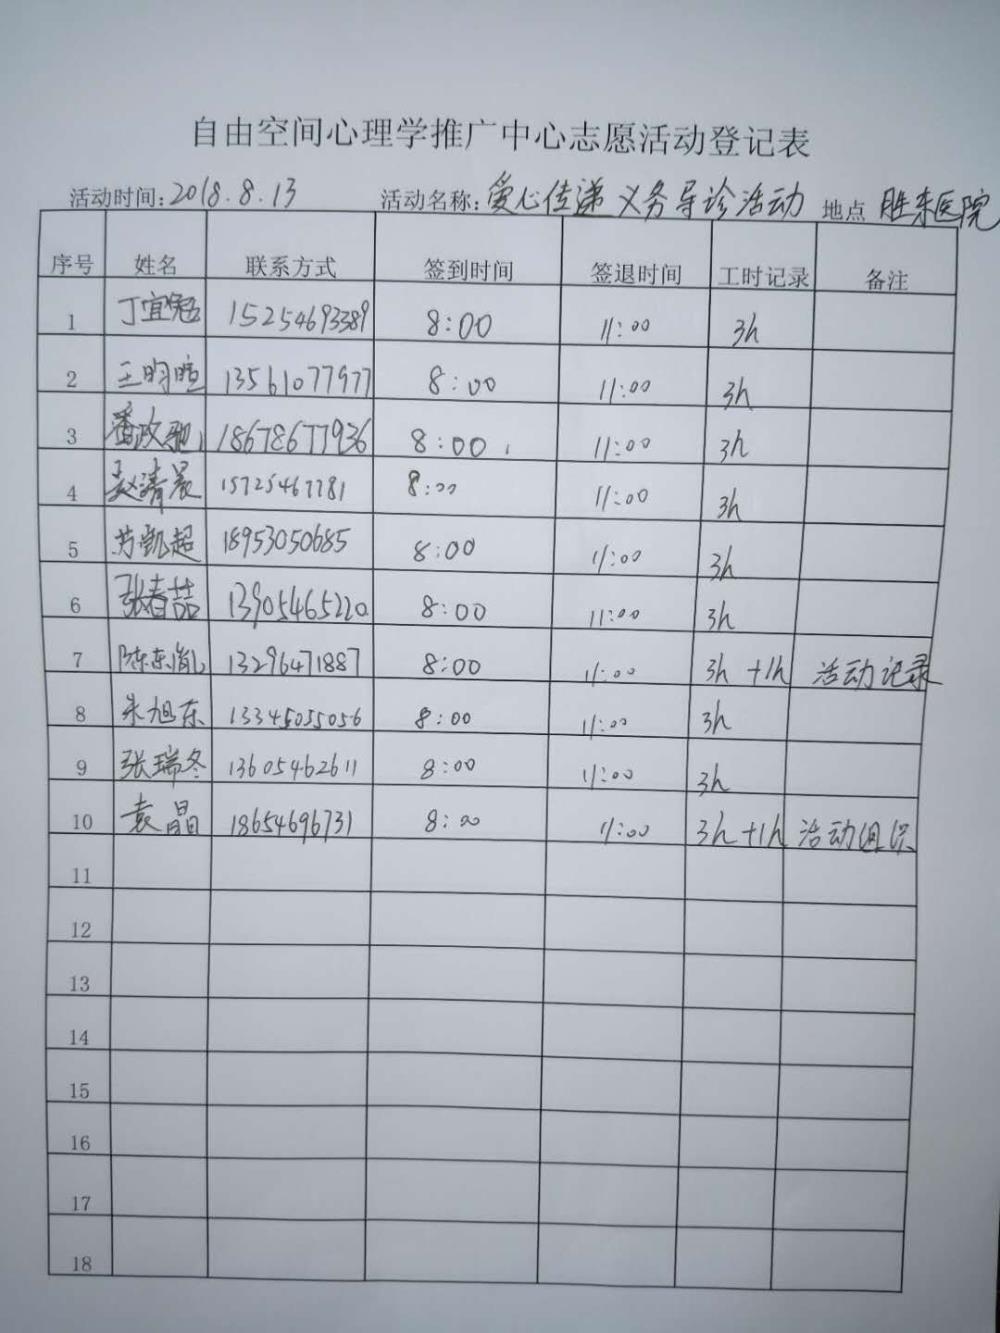 自由空间心理学推广中心志愿活动登记表
活动时间:2018.8.13 活动名称:爱心传递义务导诊活动 地点 胜东医院
序号 姓名 联系方式 签到时间 签退时间 工时记录 备注
1 丁宜冠 15254693389 8:00 11:00 3h
2 王昀暄 13561077977 8:00 11:00 3h
3 潘政驰 18678677936 8:00 11:00 3h
4 赵清晨 15725467781 8:00 11:00 3h
5 苏凯超 18953050685 8:00 11:00 3h
6 张春喆 13905465220 8:00 11:00 3h
7 陈东胤 13296471887 8:00 11:00 3h +1h 活动记录
8 朱旭东 13345055056 8:00 11:00 3h
9 张瑞冬 13605462611 8:00 11:00 3h
10 袁晶 18654696731 8:00 11:00 3h +1h 活动组织
11
12
13
14
15
16
17
18